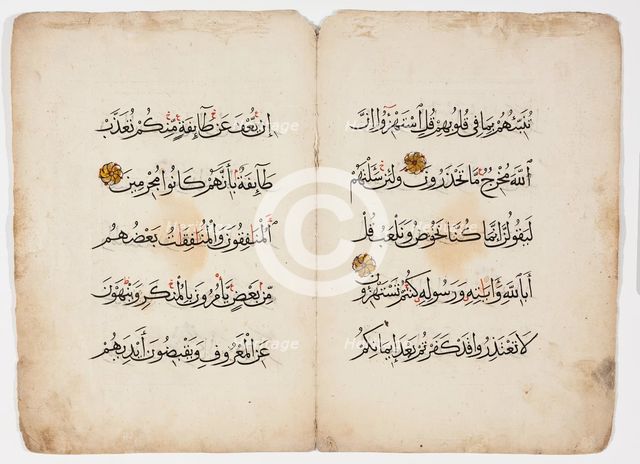 تُنَبِّئُهُمْ بِمَا فِي قُلُوبِهِمْ قُلِ ٱسْتَهْزِؤُا إِنَّ
ٱللَّهَ مُخْرِجٌ مَا تَحْذَرُونَ وَلَئِنْ سَأَلْتَهُمْ
لَيَقُولُنَّ إِنَّمَا كُنَّا نَخُوضُ وَنَلْعَبُ قُلْ
أَبِٱللَّهِ وَآيَاتِهِ وَرَسُولِهِ كُنْتُمْ تَسْتَهْزِؤُنَ
لَا تَعْتَذِرُوا قَدْ كَفَرْتُمْ بَعْدَ إِيمَانِكُمْ
إِنْ يُعْفَ عَنْ طَآئِفَةٍ مِنْكُمْ تُعَذَّبْ
طَآئِفَةٌ بِأَنَّهُمْ كَانُوا مُجْرِمِينَ
ٱلْمُنَافِقُونَ وَٱلْمُنَافِقَاتُ بَعْضُهُمْ
مِنْ بَعْضٍ يَأْمُرُونَ بِالْمُنْكَرِ وَيَنْهَوْنَ
عَنِ الْمَعْرُوفِ وَيَقْبِضُونَ أَيْدِيَهُمْ